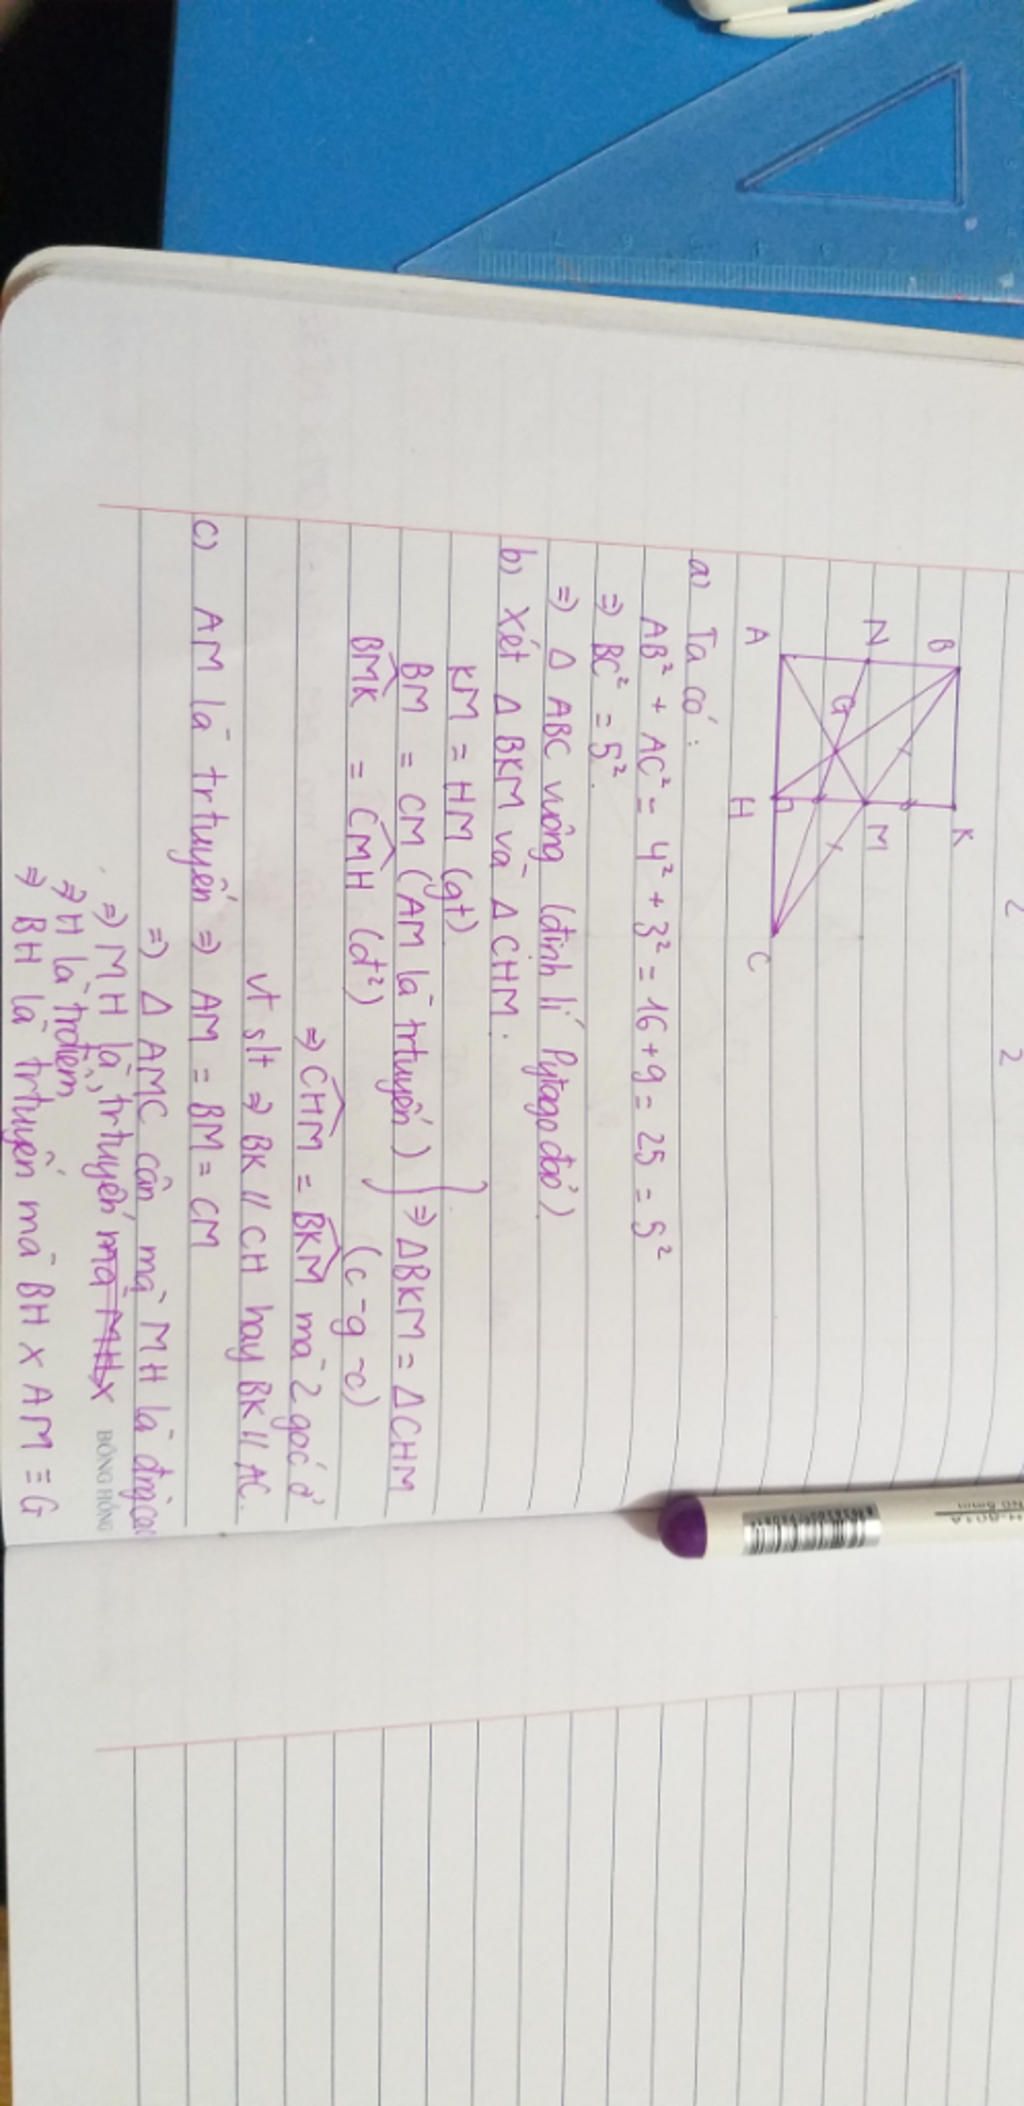 2
2
B
K
N
G
M
A
H
C
a) Ta có :
AB² + AC² = 4² + 3² = 16 + 9 = 25 = 5²
⇒ BC² = 5².
⇒ Δ ABC vuông (định lí Pytago đảo)
b) Xét Δ BKM và Δ CHM.
KM = HM (gt)
BM = CM (AM là trtuyến) } ⇒ ΔBKM = ΔCHM
B̂MK = ĈMH (đ²) (c-g-c)
⇒ ĈHM = B̂KM mà 2 góc ở
vt slt ⇒ BK // CH hay BK // AC.
c) AM là trtuyến ⇒ AM = BM = CM
⇒ Δ AMC cân mà MH là đngcao
⇒ MH là trtuyến mà MH x
⇒ H là trđiểm
⇒ BH là trtuyến mà BH x AM ≡ G
BÔNG HỒNG